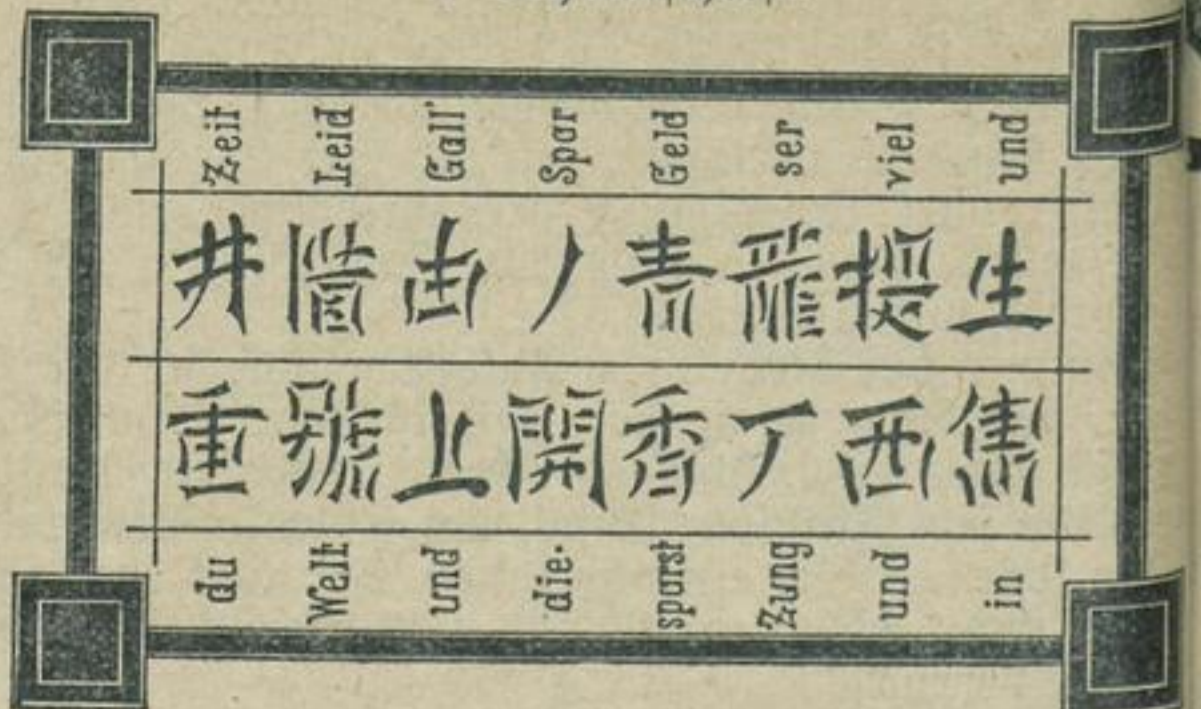 Zeit Leid Gall' Spar Geld ser viel und
井 由 丿 青 龍 生
重 號 上 開 香 丁 西
du Welt und die- sparst Zung und in